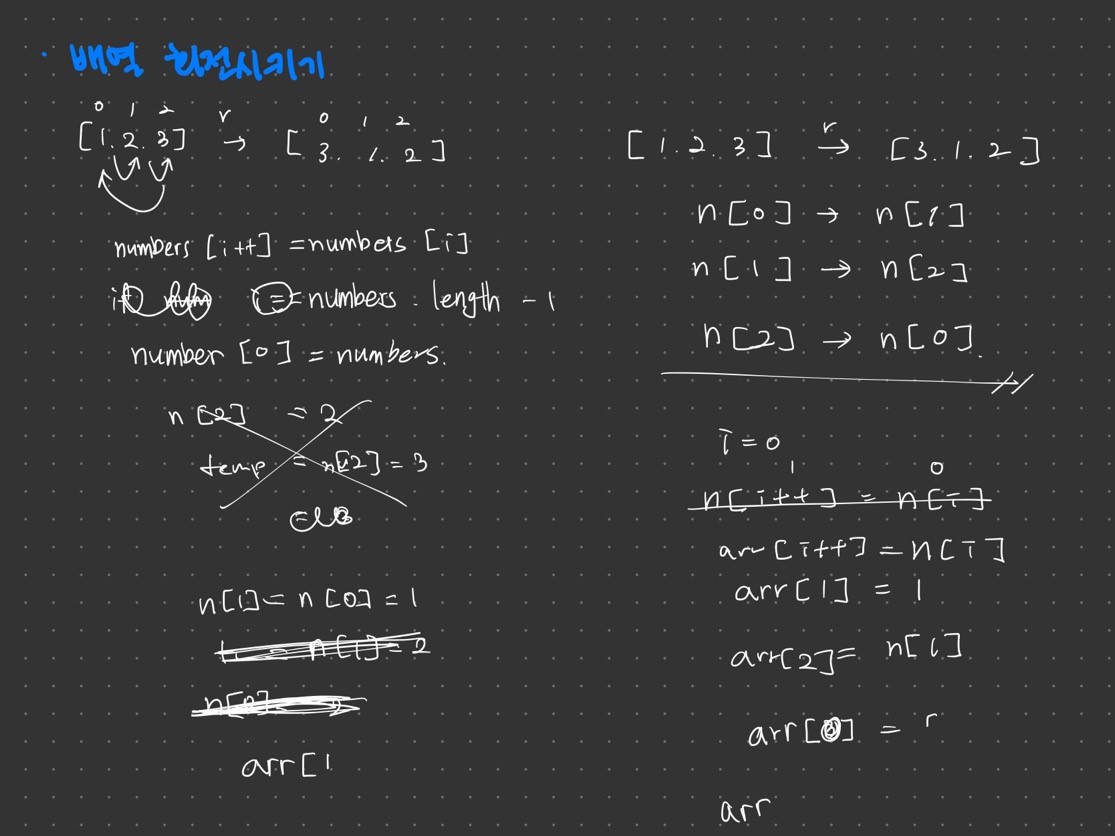 · 배열 회전시키기
0 1 2
[1. 2. 3] r → [3. 1. 2]
0 1 2
numbers [i++] = numbers [i]
i == numbers . length - 1
number [0] = numbers.
n [2] = 2
temp = n[2] = 3
n[1] = n[0] = 1
n[1] = 2
arr [1
[1. 2. 3] r → [3. 1. 2]
n[0] → n[1]
n[1] → n[2]
n[2] → n[0].
i = 0
1 0
n[i++] = n[i]
arr[i++] = n[i]
arr[1] = 1
arr[2] = n[1]
arr[0] = r
arr